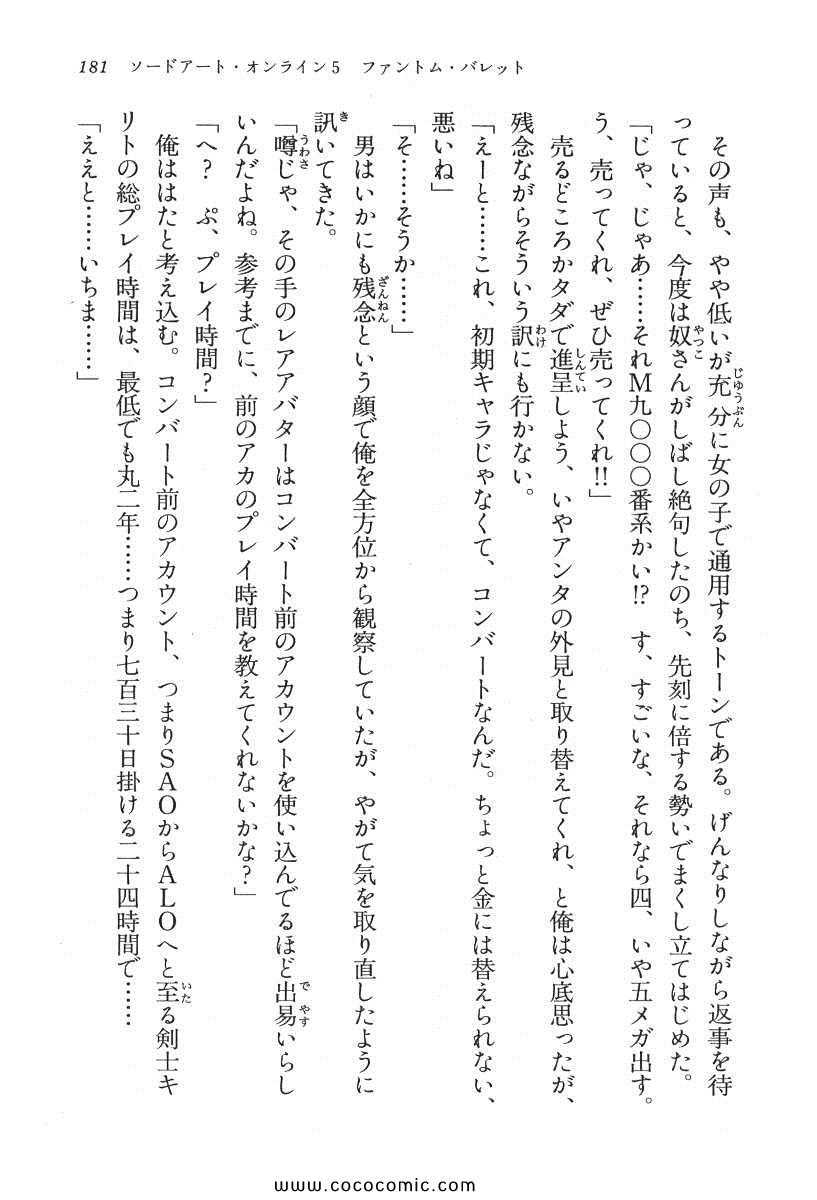 181 ソードアート・オンライン5 ファントム・バレット
その声も、やや低いが充分に女の子で通用するトーンである。げんなりしながら返事を待
っていると、今度は奴さんがしばし絶句したのち、先刻に倍する勢いでまくし立てはじめた。
「じゃ、じゃあ……それM九〇〇〇番系かい!? す、すごいな、それなら四、いや五メガ出す。
う、売ってくれ、ぜひ売ってくれ!!」
売るどころかタダで進呈しよう、いやアンタの外見と取り替えてくれ、と俺は心底思ったが、
残念ながらそういう訳にも行かない。
「えーと……これ、初期キャラじゃなくて、コンバートなんだ。ちょっと金には替えられない、
悪いね」
「そ……そうか……」
男はいかにも残念という顔で俺を全方位から観察していたが、やがて気を取り直したように
訊いてきた。
「噂じゃ、その手のレアアバターはコンバート前のアカウントを使い込んでるほど出易いらし
いんだよね。参考までに、前のアカのプレイ時間を教えてくれないかな?」
「へ? ぷ、プレイ時間?」
俺ははたと考え込む。コンバート前のアカウント、つまりSAOからALOへと至る剣士キ
リトの総プレイ時間は、最低でも丸二年……つまり七百三十日掛ける二十四時間で……
「ええと……いちま……」
www.cococomic.com